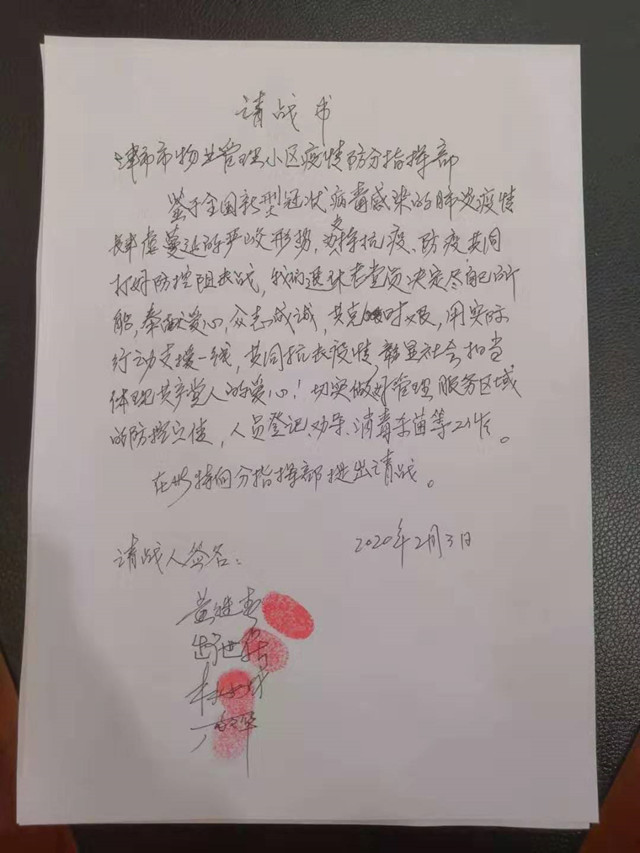 请战书
津市市物业管理小区疫情防分指挥部
鉴于全国新型冠状病毒感染的肺炎疫情
肆虐蔓延的严峻形势,为支持抗疫、防疫共同
打好防控阻击战,我们退休老党员决定尽自己所
能,奉献爱心,众志成诚,共克时艰,用实际
行动支援一线,共同抗击疫情,彰显社会担当
体现共产党人的爱心!切实做好管理服务区域
的防控宣传,人员登记、劝导、消毒杀菌等工作。
在此特向分指挥部提出请战。
2020年2月3日
请战人签名: